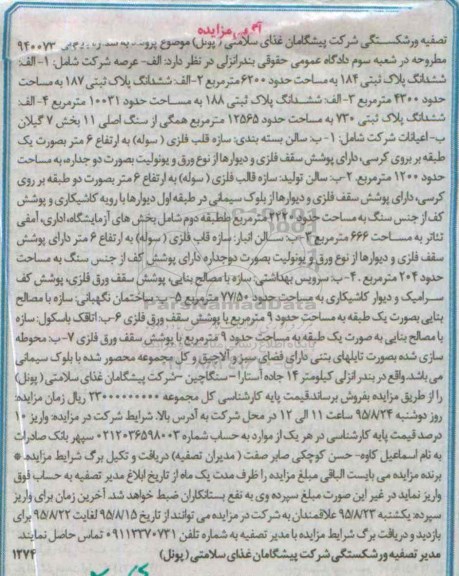 آگهی مزایده
تصفیه ورشکستگی شرکت پیشگامان غذای سلامتی ( پونل) موضوع پرونده به شماره ۹۴۰۰۷۳
مطروحه در شعبه سوم دادگاه عمومی حقوقی بندرانزلی در نظر دارد: الف- عرصه شرکت شامل: ۱-الف:
ششدانگ پلاک ثبتی ۱۸۴ به مساحت حدود ۶۲۰۰ مترمربع ۲-الف: ششدانگ پلاک ثبتی ۱۸۷ به مساحت
حدود ۴۳۰۰ مترمربع ۳-الف: ششدانگ پلاک ثبتی ۱۸۸ به مساحت حدود ۱۰۰۳۱ مترمربع ۴-الف:
ششدانگ پلاک ثبتی ۷۳۰ به مساحت حدود ۱۲۵۶۵ مترمربع همگی از سنگ اصلی ۱۱ بخش ۷ گیلان
ب-اعیانات شرکت شامل: ۱-ب: سالن بسته بندی: سازه قلب فلزی ( سوله) به ارتفاع ۶ متر بصورت یک
طبقه بر روی کرسی، دارای پوشش سقف فلزی و دیوارها از نوع ورق و یونولیت بصورت دو جداره، به مساحت
حدود ۱۲۰۰ مترمربع. ۲-ب: سالن تولید: سازه قالب فلزی ( سوله) به ارتفاع ۶ متر بصورت دو طبقه بر روی
کرسی، دارای پوشش سقف فلزی و دیوارها از بلوک سیمانی در طبقه اول دیوارها با رویه کاشیکاری و پوشش
کف از جنس سنگ به مساحت حدود ۲۲۲۰ مترمربع طبقه دوم شامل بخش های آزمایشگاه، اداری، آمفی
تئاتر به مساحت ۶۶۶ مترمربع ۳-ب: سالن انبار: سازه قاب فلزی ( سوله) به ارتفاع ۶ متر دارای پوشش
سقف فلزی و دیوارها از نوع ورق و یونولیت بصورت دوجداره دارای پوشش کف از جنس سنگ به مساحت
حدود ۲۰۴ مترمربع . ۴-ب: سرویس بهداشتی: سازه با مصالح بنایی، پوشش سقف ورق فلزی، پوشش کف
سرامیک و دیوار کاشیکاری به مساحت حدود ۷۷/۵۰ مترمربع ۵-ب: ساختمان نگهبانی: سازه با مصالح
بنایی بصورت یک طبقه به مساحت حدود ۹ مترمربع با پوشش سقف ورق فلزی ۶-ب: اتاقک باسکول: سازه
با مصالح بنایی به صورت یک طبقه به مساحت حدود ۹ مترمربع با پوشش سقف ورق فلزی ۷-ب: محوطه
سازی شده بصورت تایلهای بتنی دارای فضای سبز و آلاچیق و کل مجموعه محصور شده با بلوک سیمانی
می باشد. واقع در بندر انزلی کیلومتر ۱۴ جاده آستارا – سنگاچین –شرکت پیشگامان غذای سلامتی ( پونل)
را از طریق مزایده بفروش برساند. قیمت پایه کارشناسی کل مجموعه ریال زمان مزایده:
روز دوشنبه ۹۵/۸/۲۴ ساعت ۱۱ الی ۱۲ در محل شرکت به آدرس بالا. شرایط شرکت در مزایده: واریز ۱۰
درصد قیمت پایه کارشناسی در هر یک از موارد به حساب شماره ۰۲۱۲۰۳۶۵۹۸۰۰۳ سپهر بانک صادرات
به نام اسماعیل کاوه- حسن کوچکی صابر صفت ( مدیران تصفیه) دریافت و تکمیل برگ شرایط مزایده. *
برنده مزایده می بایست الباقی مبلغ مزایده را ظرف مدت یک ماه از تاریخ ابلاغ مدیر تصفیه به حساب فوق
واریز نماید در غیر این صورت مبلغ سپرده وی به نفع بستانکاران ضبط خواهد شد. آخرین زمان برای واریز
سپرده: یکشنبه ۹۵/۸/۲۳ علاقمندان به شرکت در مزایده می توانند از تاریخ ۹۵/۸/۱۵ لغایت ۹۵/۸/۲۲ برای
بازدید و دریافت برگ شرایط مزایده با مدیر تصفیه به شماره تلفن ۰۹۱۱۳۳۷۰۷۳۱ تماس حاصل نمایند.
مدیر تصفیه ورشکستگی شرکت پیشگامان غذای سلامتی ( پونل) ۱۲۷۴